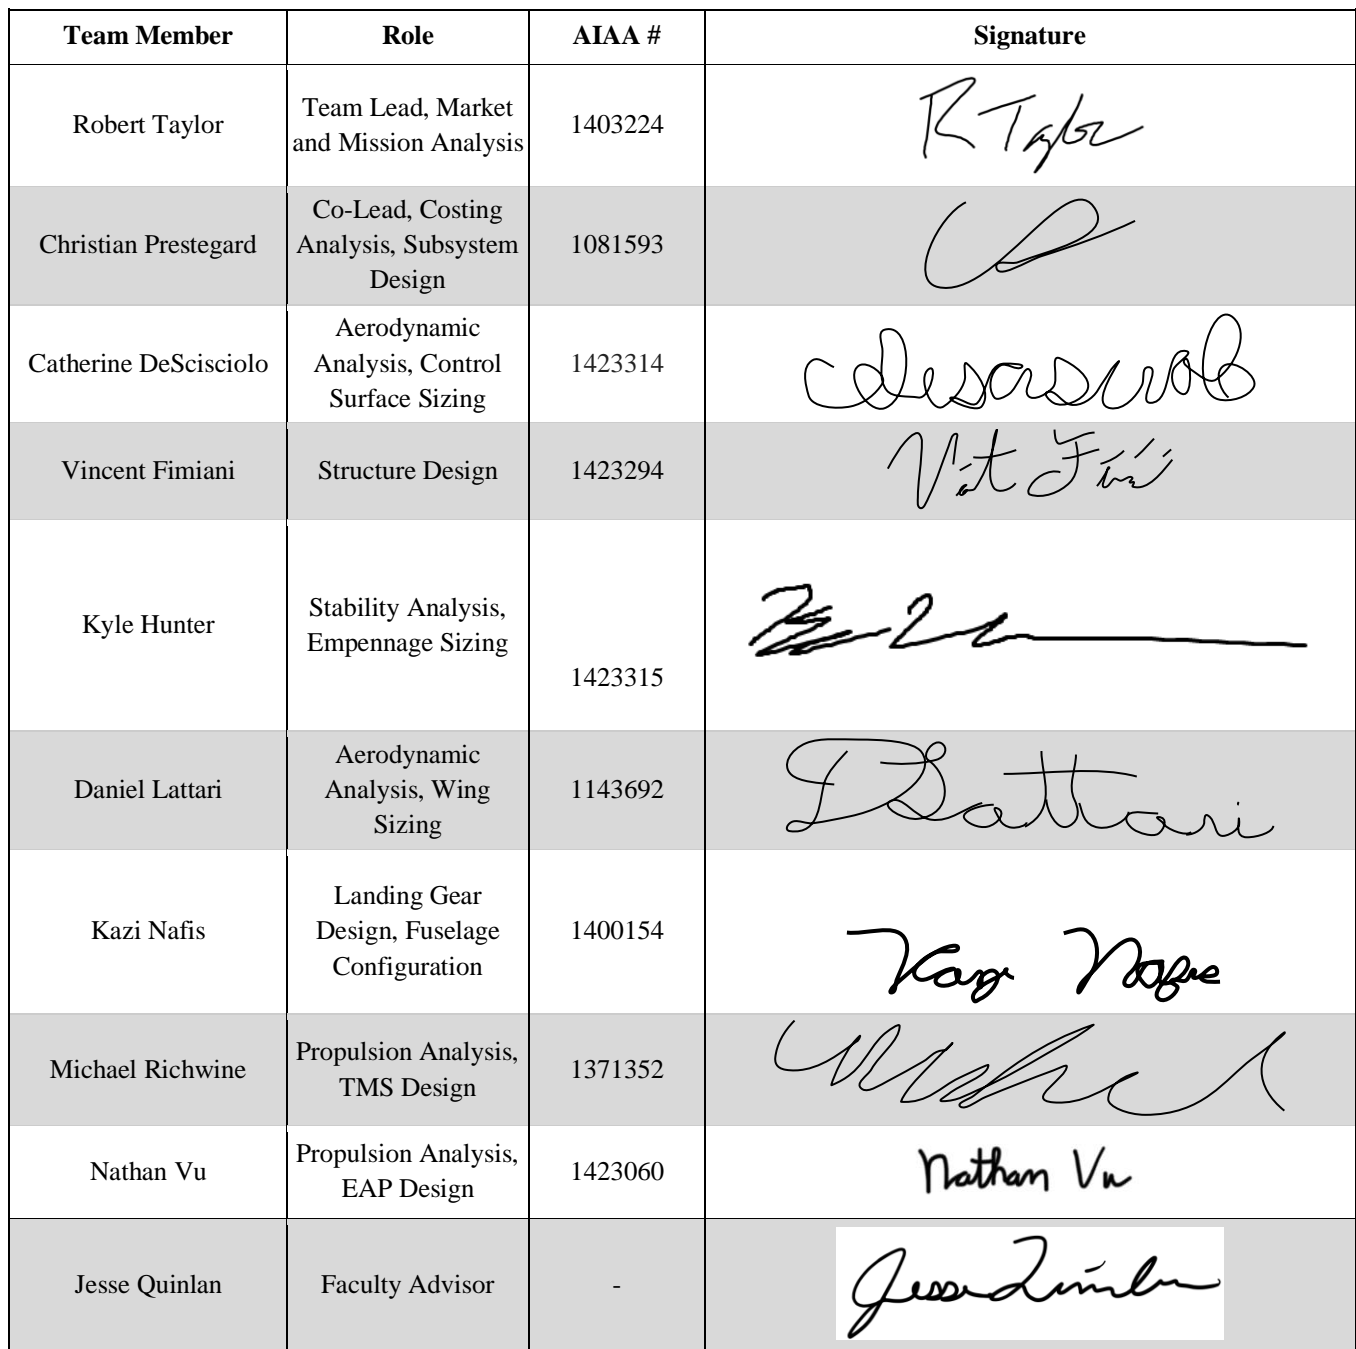 Team Member Role AIAA # Signature
Robert Taylor
Team Lead, Market
and Mission Analysis
1403224
R Taylor
Christian Prestegard
Co-Lead, Costing
Analysis, Subsystem
Design
1081593
Catherine DeScisciolo
Aerodynamic
Analysis, Control
Surface Sizing
1423314
Vincent Fimiani
Structure Design
1423294
Kyle Hunter
Stability Analysis,
Empennage Sizing
1423315
Daniel Lattari
Aerodynamic
Analysis, Wing
Sizing
1143692
D Lattari
Kazi Nafis
Landing Gear
Design, Fuselage
Configuration
1400154
Kazi Nafis
Michael Richwine
Propulsion Analysis,
TMS Design
1371352
Nathan Vu
Propulsion Analysis,
EAP Design
1423060
Nathan Vu
Jesse Quinlan
Faculty Advisor
-
Jesse Quinlan